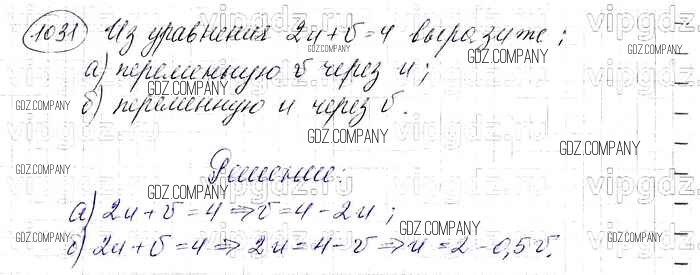 1031 Из уравнения 2u+v=4 выразите;
а) переменную v через u;
б) переменную u через v.
Решение:
а) 2u+v=4⇒v=4-2u;
б) 2u+v=4⇒2u=4-v⇒u=2-0,5v.
GDZ.COMPANY
GDZ.COMPANY
GDZ.COMPANY
GDZ.COMPANY
GDZ.COMPANY
GDZ.COMPANY
GDZ.COMPANY
GDZ.COMPANY
GDZ.COMPANY
GDZ.COMPANY
GDZ.COMPANY
vipgdz.ru
vipgdz.ru
vipgdz.ru